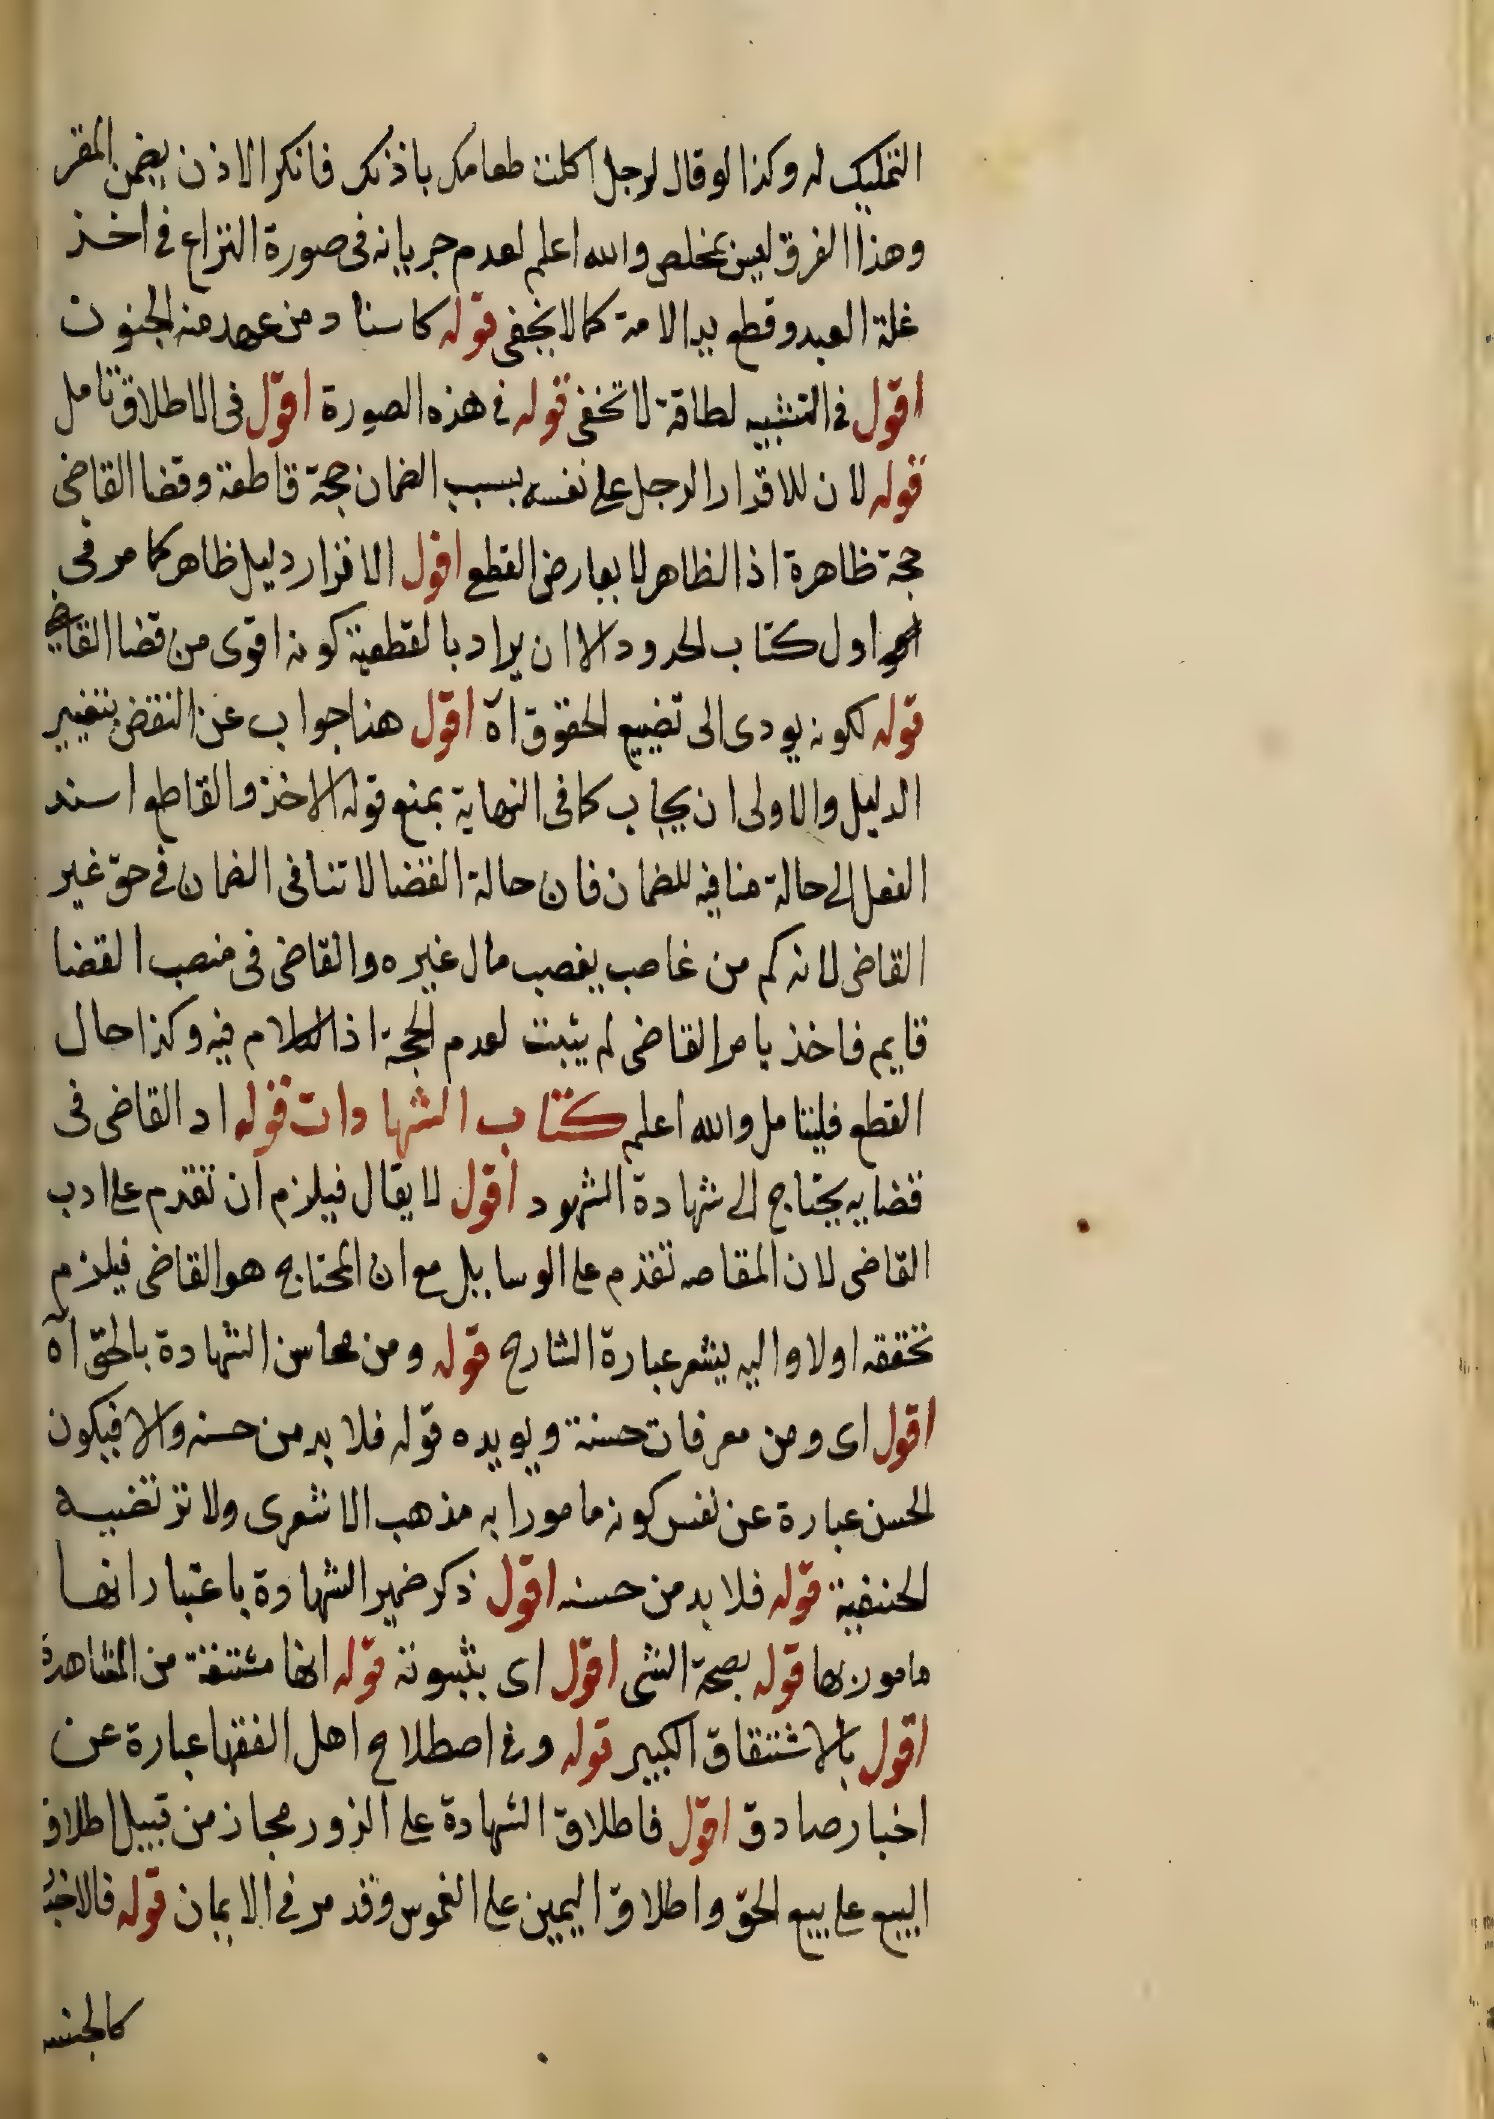 التمليك له وكذا لو قال لرجل اكلت طعامك باذنك فانكر الاذن يضمن المقر
وهذا الفرق ليس بمخلص والله اعلم لعدم جريانه فى صورة النزاع فى اخذ
غلة العبد وقطع يد الامة كما لا يخفى قوله كاسناد من عهد منه الجنون
اقول فى التشبيه لطاقة لا تخفى قوله فى هذه الصورة اقول فى الاطلاق تامل
قوله لان للاقرار الرجل على نفسه بسبب الضمان حجة قاطعة وقضا القاضى
حجة ظاهرة اذ الظاهر لا يعارض القطع اقول الاقرار دليل ظاهر كما مر فى
اول كتاب الحدود الا ان يراد بالقطعية كونه اقوى من قضا القاضى
قوله لكونه يودى الى تضييع الحقوق اه اقول هذا جواب عن النقض بتغيير
الدليل والاولى ان يجاب كما فى النهاية بمنع قوله الاخذ والقاطع اسند
الفعل الى حالة منافيه للضمان فان حالة القضا لا تنافى الضمان فى حق غير
القاضى لانه كم من غاصب يغصب مال غيره والقاضى فى منصب القضا
قايم فاخذ بامر القاضى لم يثبت لعدم الحجة اذ الكلام فيه وكذا حال
القطع فليتامل والله اعلم كتاب الشهادات قوله اد القاضى فى
قضايه يحتاج الى شهادة الشهود اقول لا يقال فيلزم ان تقدم على ادب
القاضى لان المقاصد تقدم على الوسايل مع ان المحتاج هو القاضى فيلزم
تحققه اولا واليه يشعر عبارة الشارح قوله ومن محاسن الشهادة بالحق اه
اقول اى ومن معرفات حسنة ويويده قوله فلا بد من حسنه والا فيكون
الحسن عبارة عن نفس كونه مامورا به مذهب الاشعرى ولا ترتضيه
الحنفية قوله فلا بد من حسنه اقول ذكر ضمير الشهادة باعتبار انها
مامور بها قوله بصحة الشى اقول اى بثبوته قوله انها مشتقة من المشاهدة
اقول بالاشتقاق الكبير قوله وفى اصطلاح اهل الفقها عبارة عن
اخبار صادق اقول فاطلاق الشهادة على الزور مجاز من قبيل اطلاق
البيع على بيع الحق واطلاق اليمين على الغموس وقد مر فى الايمان قوله فالاخبار
كالجنس